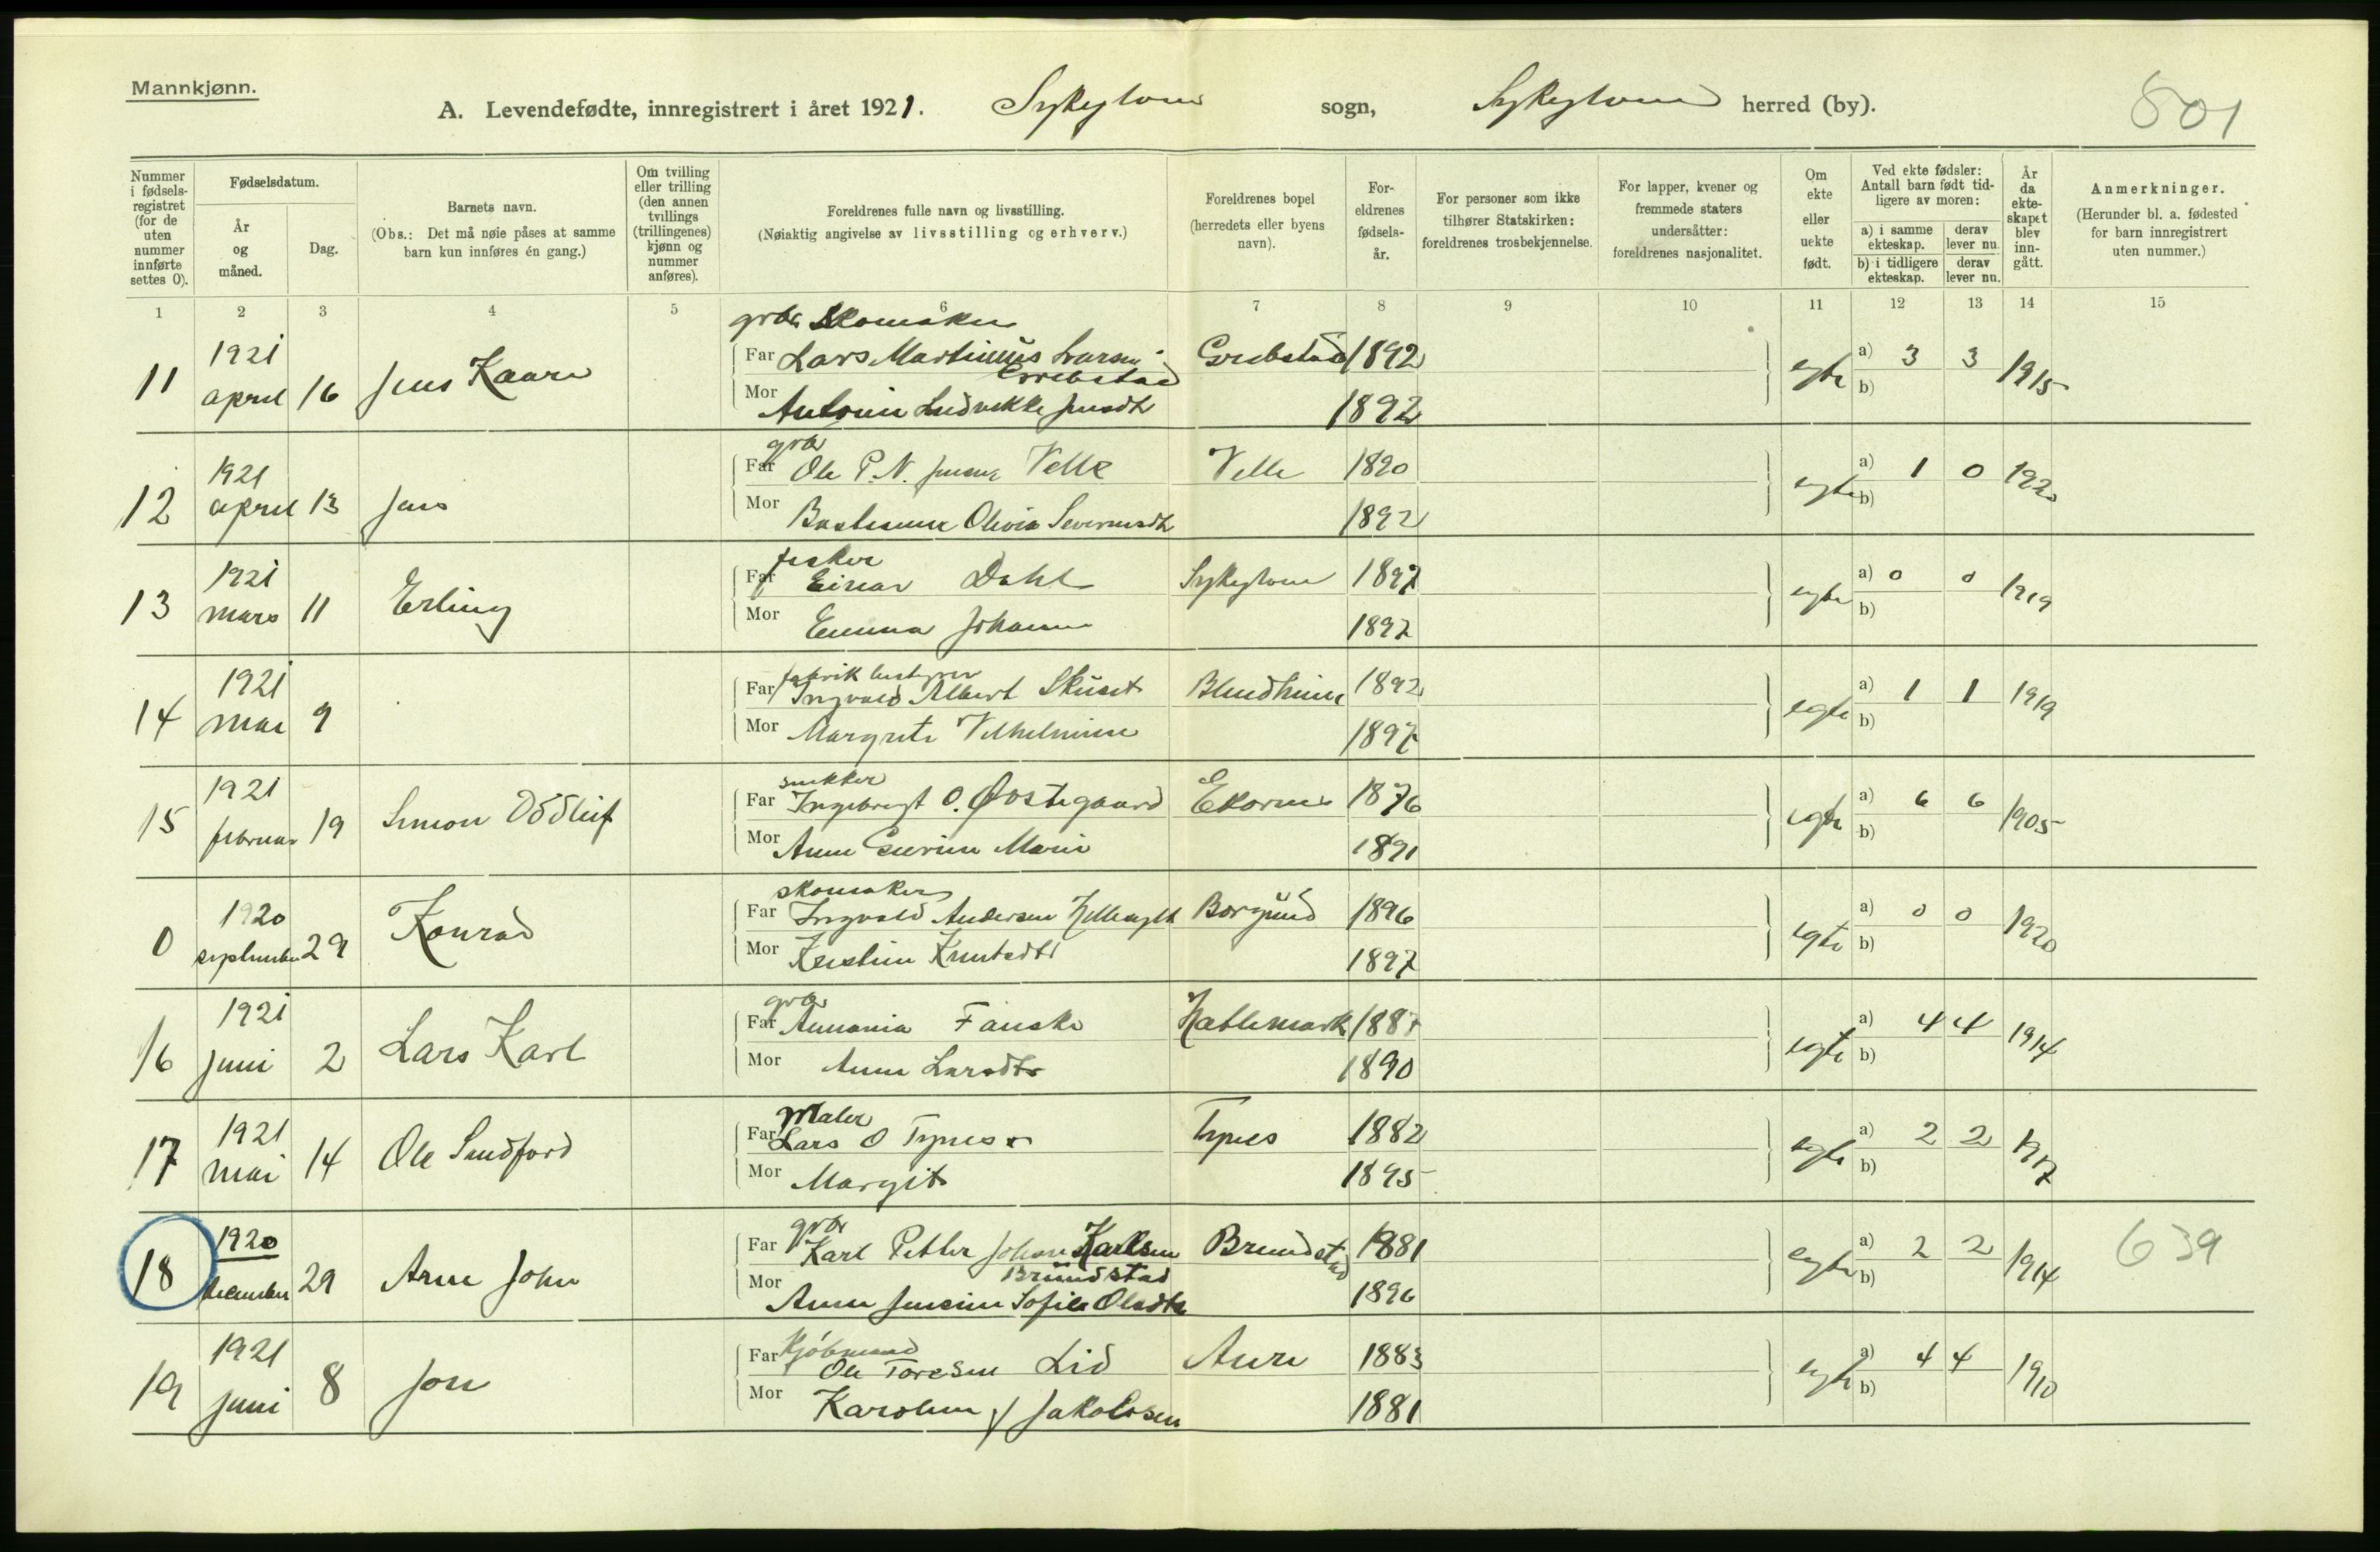 Mannkjønn.
A. Levendefødte, innregistrert i året 1921. Sykkylven sogn, Sykkylven herred (by).
801
Nummer i fødsels-registret (for de uten nummer innførte settes 0).
Fødselsdatum.
År og måned.
Dag.
Barnets navn.
(Obs.: Det må nøie påses at samme barn kun innføres én gang.)
Om tvilling eller trilling (den annen tvillings (trillingenes) kjønn og nummer anføres).
Foreldrenes fulle navn og livsstilling.
(Nøiaktig angivelse av livsstilling og erhverv.)
Foreldrenes bopel (herredets eller byens navn).
For-eldrenes fødsels-år.
For personer som ikke tilhører Statskirken: foreldrenes trosbekjennelse.
For lapper, kvener og fremmede staters undersåtter: foreldrenes nasjonalitet.
Om ekte eller uekte født.
Ved ekte fødsler: Antall barn født tid-ligere av moren:
a) i samme ekteskap. derav lever nu.
b) i tidligere ekteskap. derav lever nu.
År da ekte-skapet blev inn-gått.
Anmerkninger.
(Herunder bl. a. fødested for barn innregistrert uten nummer.)
1 2 3 4 5 6 7 8 9 10 11 12 13 14 15
grbr. Skomaker
11 1921 april 16 Jens Kaare Far Lars Martinius Larsen Grebstad Grebstad 1892 egte a) 3 3 1915
Mor Antonie Ludvikke Jensdtr 1892 b)
grbr
12 1921 april 13 Jens Far Ole P. N. Jensen Velle Velle 1890 egte a) 1 0 1920
Mor Bastianne Olivia Severinsdtr 1892 b)
fisker
13 1921 mars 11 Erling Far Einar Dahl Sykkylven 1897 egte a) 0 0 1919
Mor Emma Johanne 1897 b)
fabrik bestyrer
14 1921 mai 9 Far Ingvald Albert Skuset Blindheim 1892 egte a) 1 1 1919
Mor Margrete Vilhelmine 1897 b)
snekker
15 1921 februar 19 Simon Oddleif Far Ingebrigt O. Østegaard Ekornes 1876 egte a) 6 6 1905
Mor Anne Severine Marie 1891 b)
skomaker
0 1920 september 29 Konrad Far Ingvald Andersen Hellesylt Borgund 1896 egte a) 0 0 1920
Mor Kristine Knutsdtr 1897 b)
grbr
16 1921 juni 2 Lars Karl Far Annania Fauske Hatlemark 1887 egte a) 4 4 1914
Mor Anne Larsdtr 1890 b)
Maler
17 1921 mai 14 Ole Sindford Far Lars O Tynes Tynes 1882 egte a) 2 2 1917
Mor Margit 1895 b)
grbr
18 1920 december 29 Arne John Far Karl Petter Johan Karlsen Brundstad Brundstad 1881 egte a) 2 2 1914 639
Mor Anne Jensine Sofie Olsdtr 1896 b)
Kjøbmand
19 1921 juni 8 Jon Far Ole Toresen Lid Aure 1883 egte a) 4 4 1910
Mor Karoline f Jakobsen 1881 b)